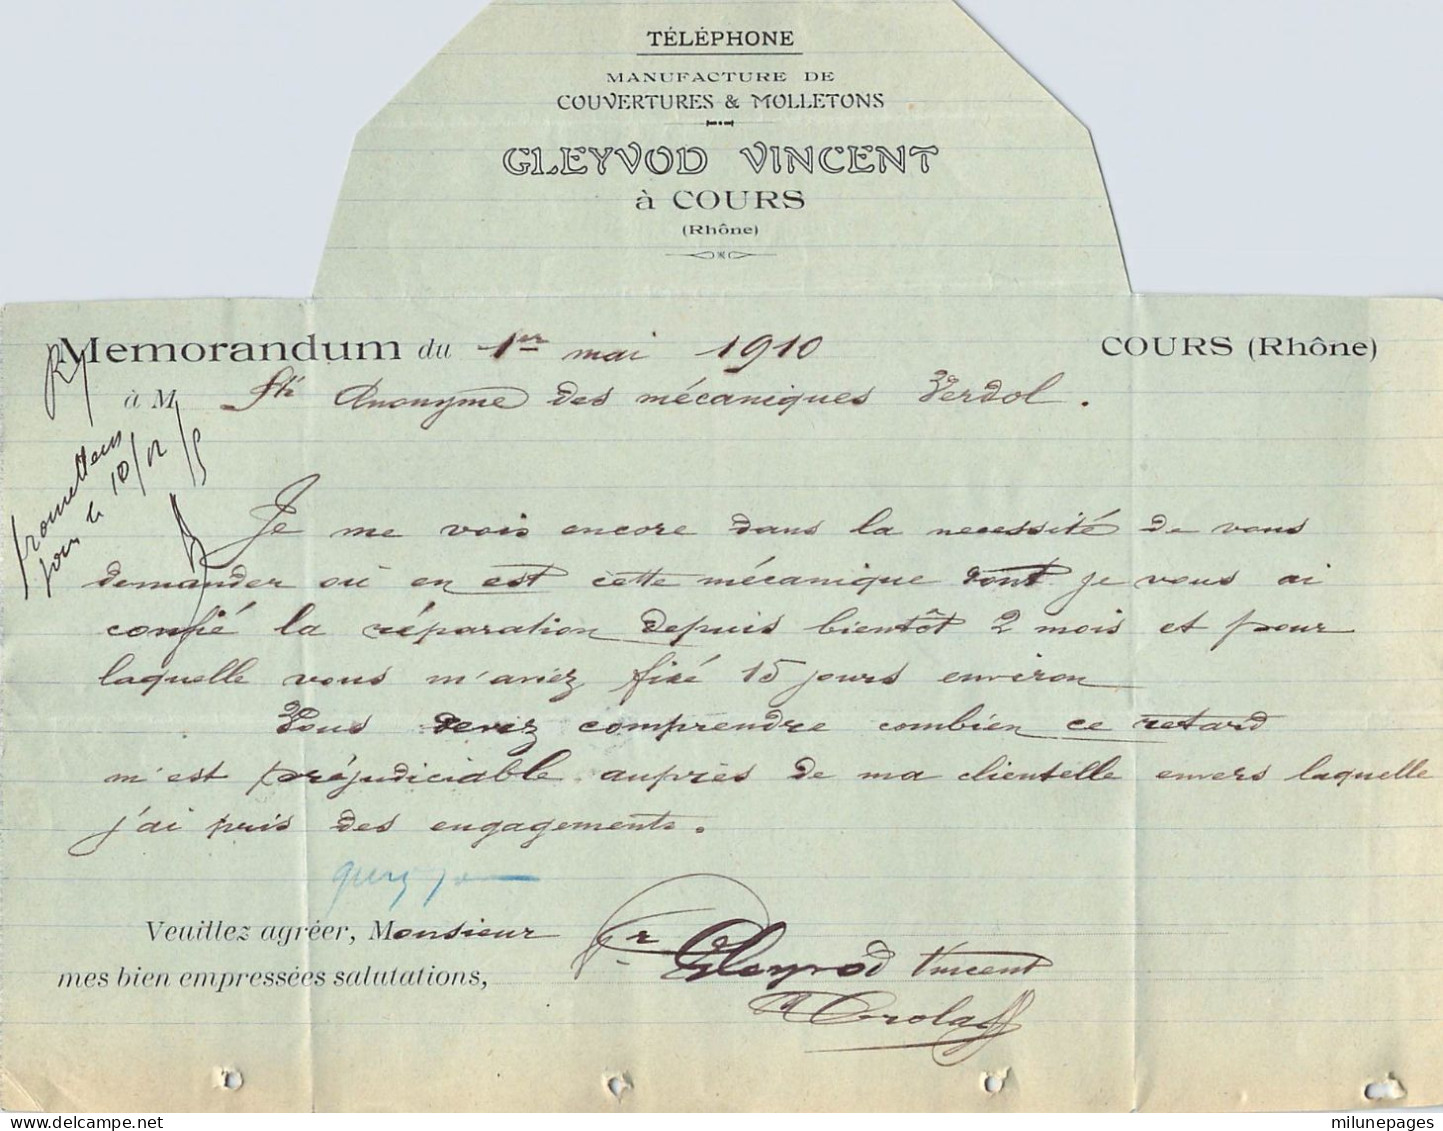 TÉLÉPHONE
MANUFACTURE DE
COUVERTURES & MOLLETONS
GLEYVOD VINCENT
à COURS
(Rhône)
Memorandum du 1er mai 1910 COURS (Rhône)
à M Sté Anonyme des mécaniques Verdol.
promettons
pour le 10/12/5
Je me vois encore dans la necessité de vous
demander où en est cette mécanique dont je vous ai
confié la réparation depuis bientôt 2 mois et pour
laquelle vous m'aviez fixé 15 jours environ
Vous devez comprendre combien ce retard
m'est préjudiciable auprès de ma clientelle envers laquelle
j'ai pris des engagements.
Veuillez agréer, Monsieur
mes bien empressées salutations,
Pr Gleyvod Vincent
milunepages